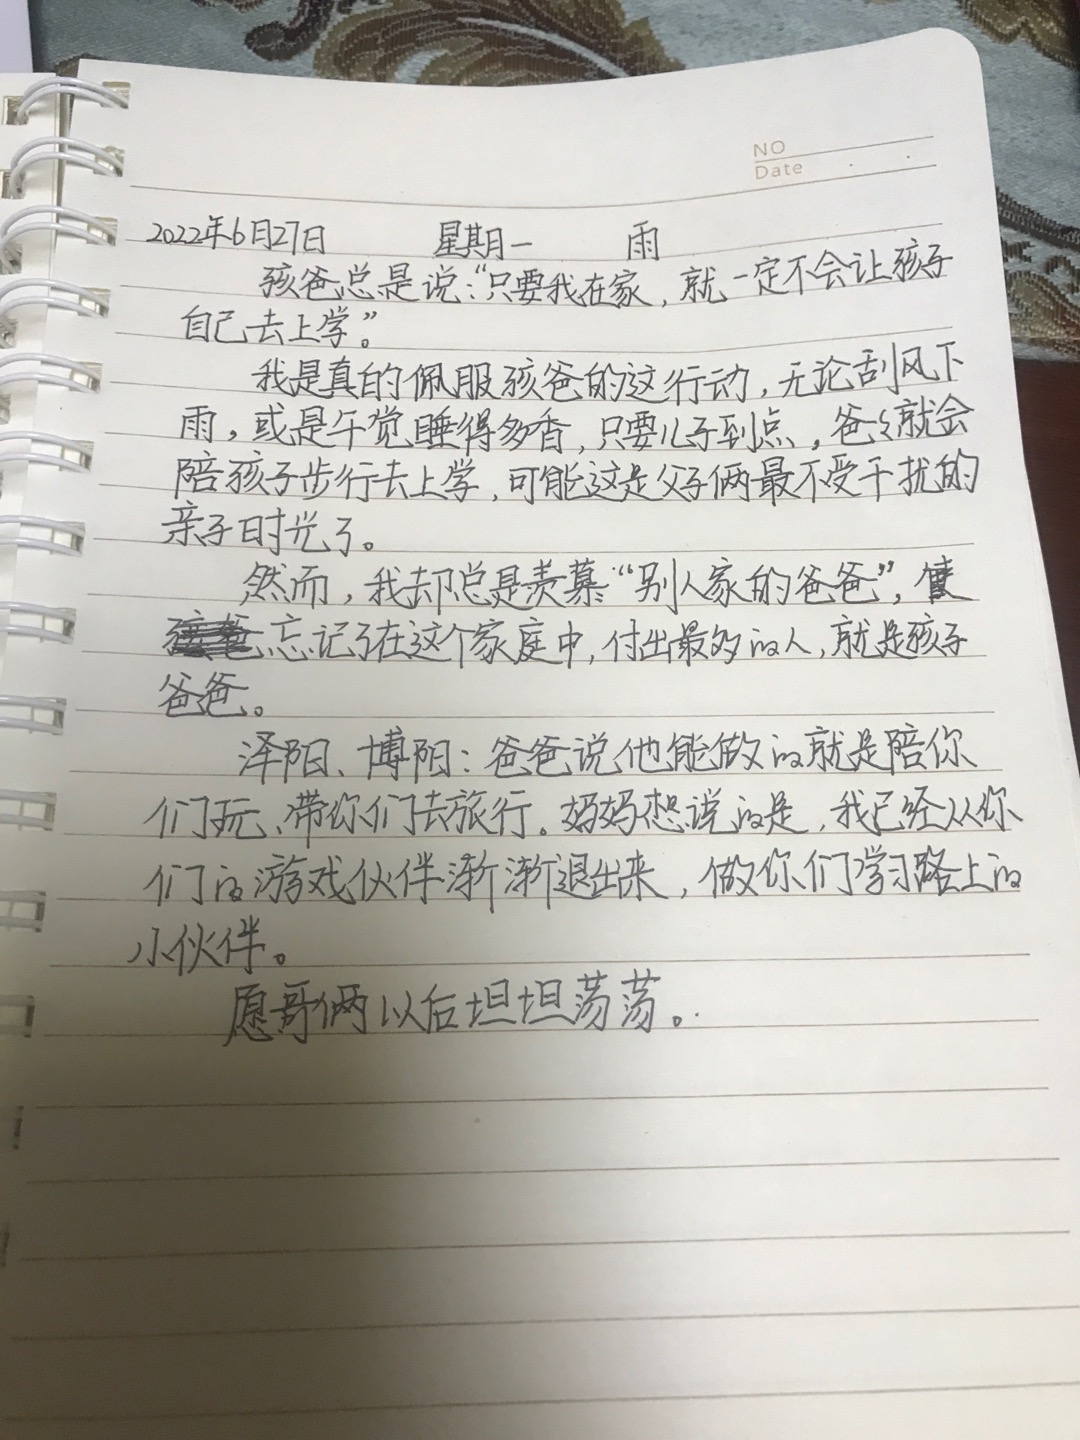 NO
Date
2022年6月27日 星期一 雨
孩爸总是说:“只要我在家,就一定不会让孩子
自己去上学。”
我是真的佩服孩爸的这行动,无论刮风下
雨,或是午觉睡得多香,只要儿子到点,爸々就会
陪孩子步行去上学,可能这是父子俩最不受干扰的
亲子时光了。
然而,我却总是羡慕“别人家的爸爸”,
忘记了在这个家庭中,付出最多的人,就是孩子
爸爸。
泽阳、博阳:爸爸说他能做的就是陪你
们玩、带你们去旅行。妈妈想说的是,我已经从你
们的游戏伙伴渐渐退出来,做你们学习路上的
小伙伴。
愿哥俩以后坦坦荡荡。